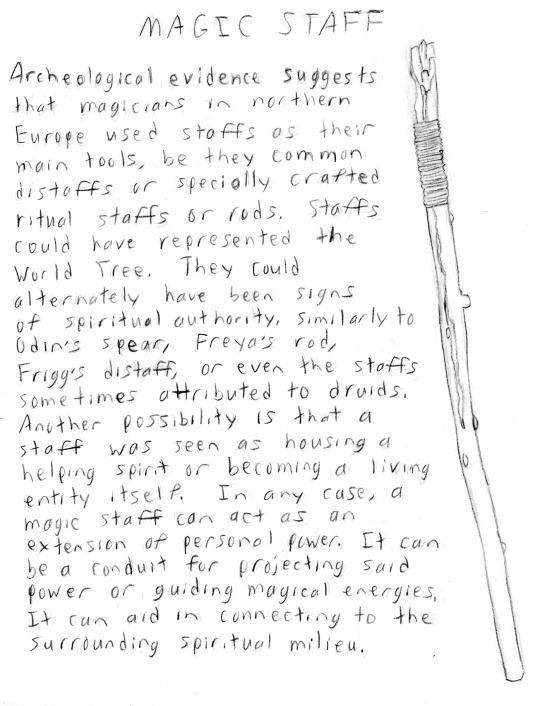 MAGIC STAFF
Archeological evidence suggests
that magicians in northern
Europe used staffs as their
main tools, be they common
distaffs or specially crafted
ritual staffs or rods. Staffs
could have represented the
World Tree. They could
alternately have been signs
of spiritual authority, similarly to
Odin's spear, Freya's rod,
Frigg's distaff, or even the staffs
sometimes attributed to druids.
Another possibility is that a
staff was seen as housing a
helping spirit or becoming a living
entity itself. In any case, a
magic staff can act as an
extension of personal power. It can
be a conduit for projecting said
power or guiding magical energies.
It can aid in connecting to the
surrounding spiritual milieu.